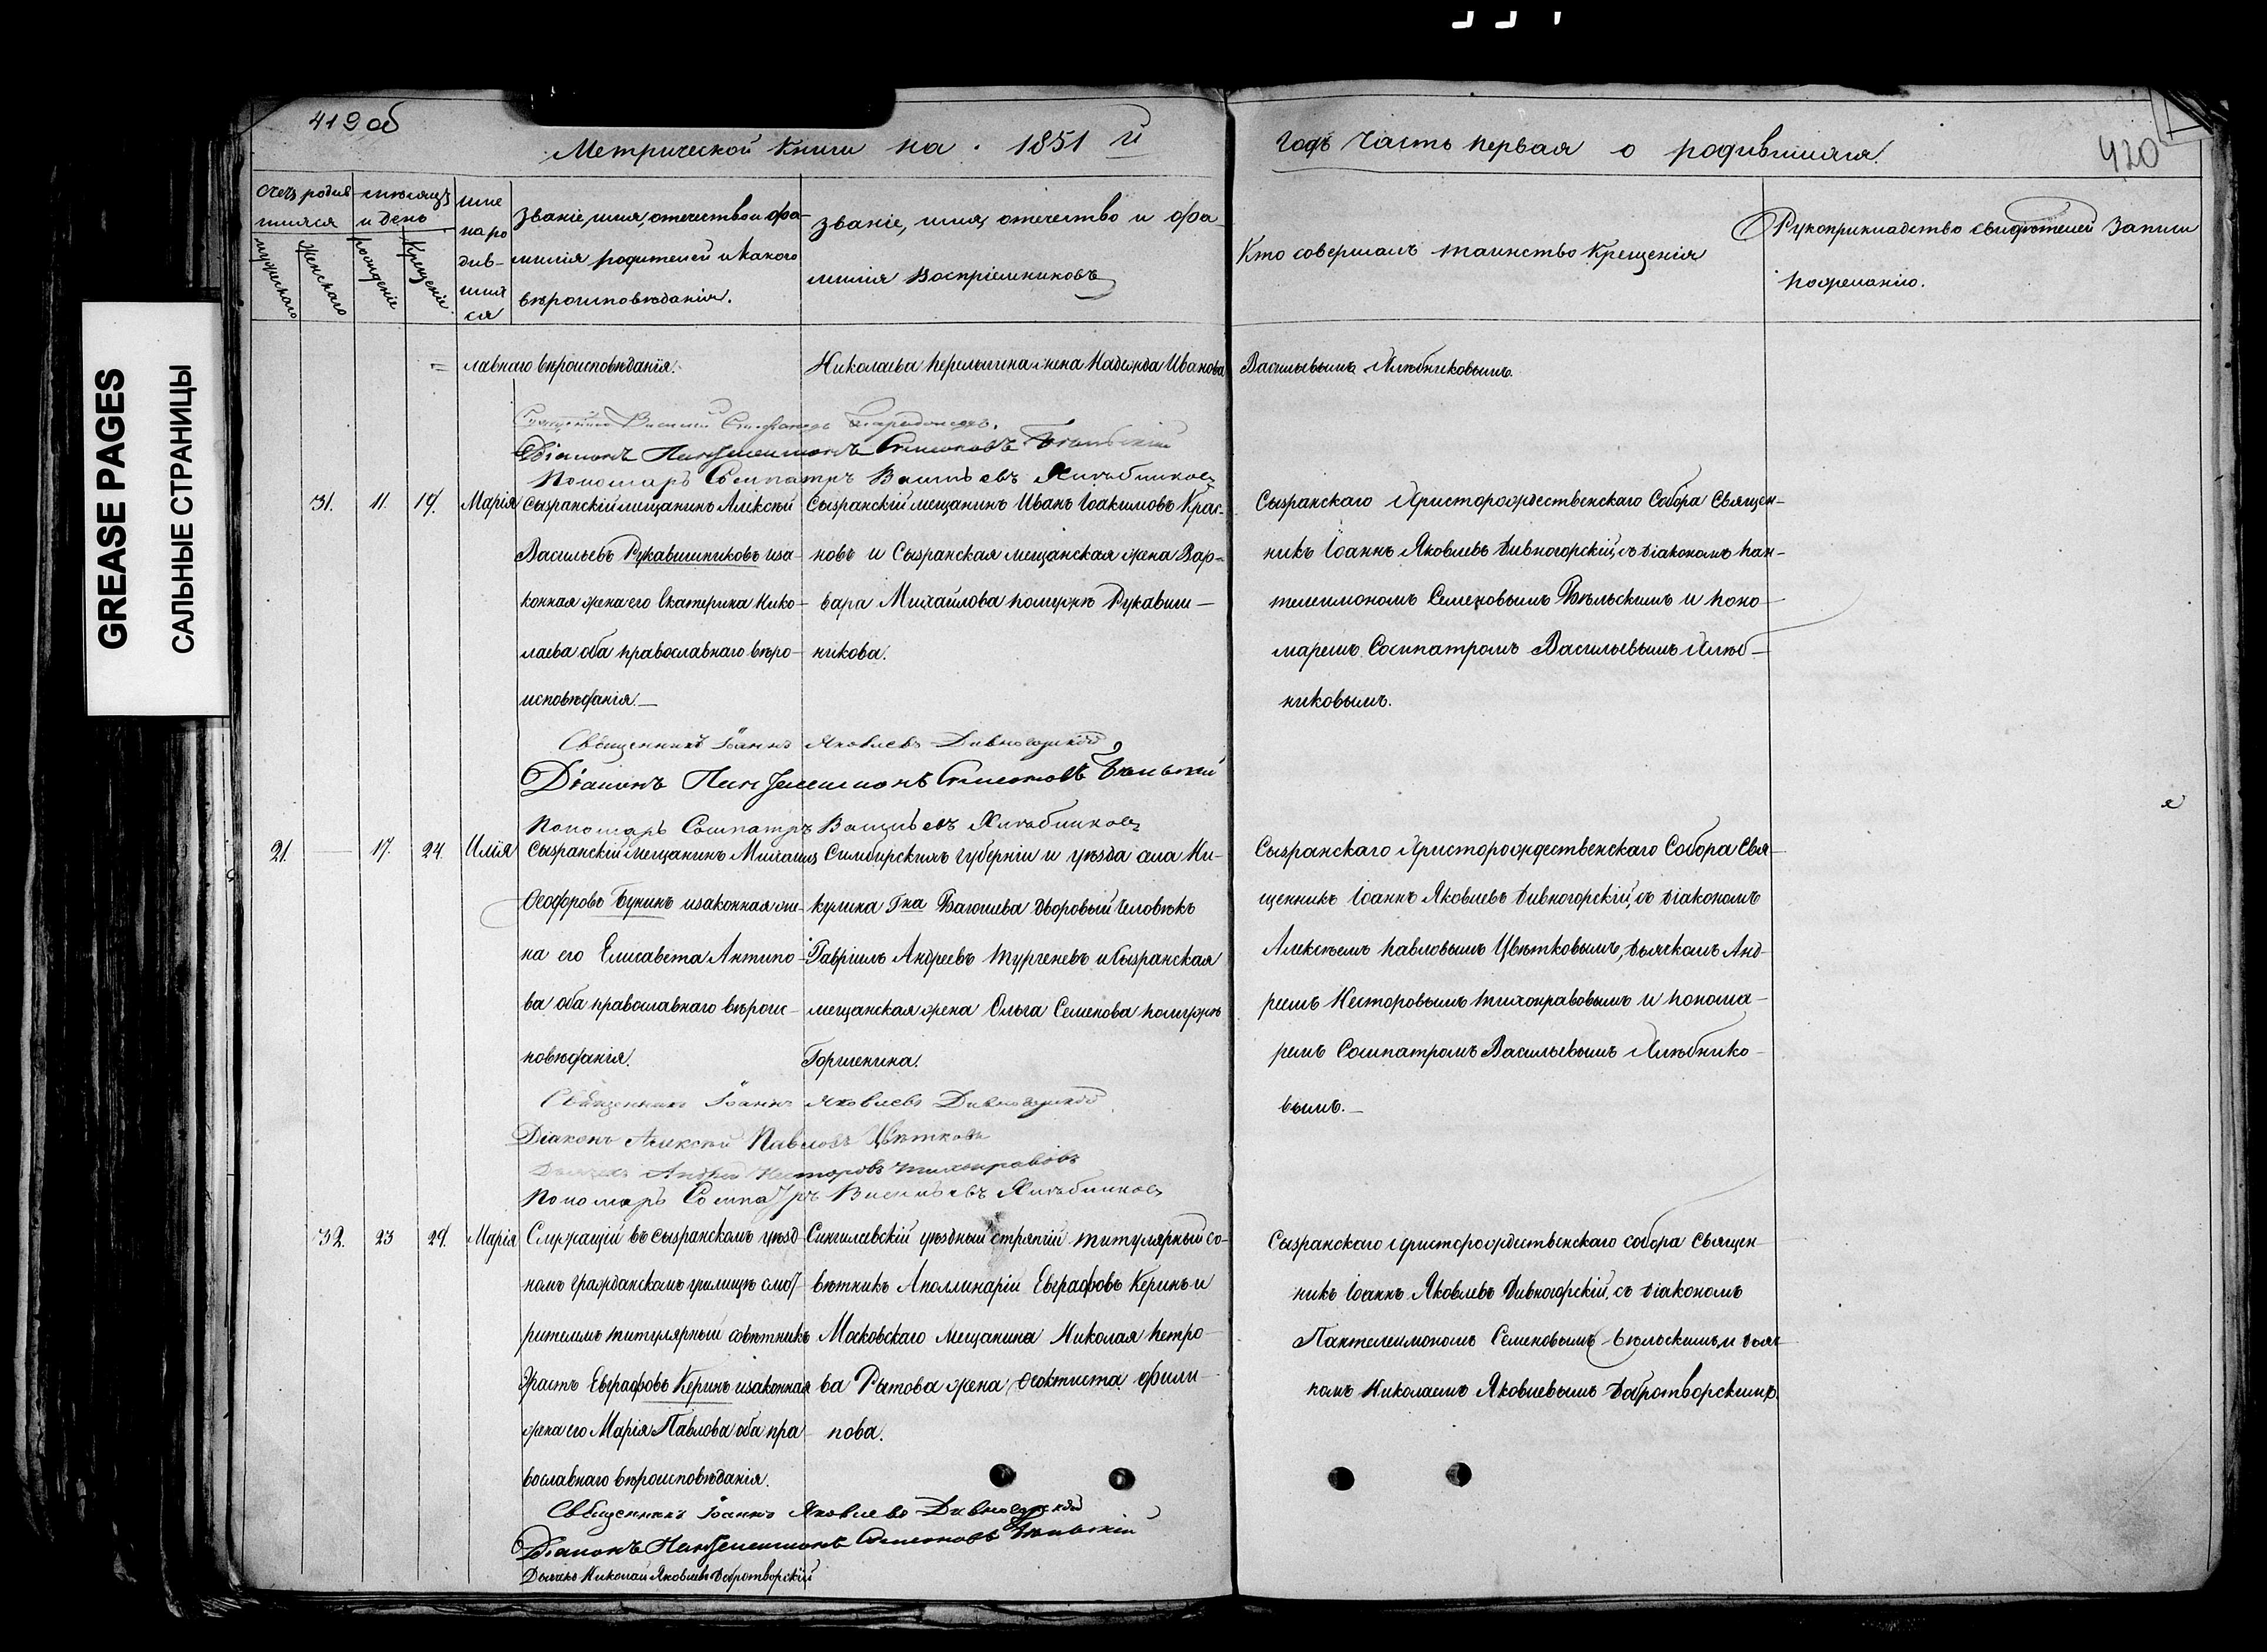 GREASE PAGES
САЛЬНЫЕ СТРАНИЦЫ
419 об
Метрической книги на 1851 й
годъ часть первая о родившихся.
420
счетъ родив
шихся
мужскаго
женскаго
мѣсяцъ
и день
рожденіе
крещеніе
имя
наро
див-
ших
ся
званіе, имя, отчество и фа-
милія родителей и какого
вѣроисповѣданія.
званіе, имя, отчество и фа-
милія воспріемниковъ
Кто совершалъ таинство крещенія
Рукоприкладство свидѣтелей записи
по желанію.
лавнаго вѣроисповѣданія.
Николаева Перелыгина жена Надежда Иванова
Васильевымъ Хлѣбниковымъ.
Священникъ Василій
Діаконъ Пантелеимонъ Семеновъ Бѣльскій
Пономарь Сосипатръ Васильевъ Хлѣбниковъ
31. 11. 19. Марія
Сызранскій мещанинъ Алексѣй
Васильевъ Рукавишниковъ и за-
конная жена его Екатерина Нико-
лаева оба православнаго вѣро-
исповѣданія.
Сызранскій мещанинъ Иванъ Іоакимовъ Крас-
новъ и Сызранская мещанская жена Вар-
вара Михайлова помужѣ Рукавиш-
никова.
Сызранскаго Христорождественскаго Собора Священ-
никъ Іоаннъ Яковлевъ Дивногорскій съ діакономъ Пан-
телеимономъ Семеновымъ Бѣльскимъ и поно-
маремъ Сосипатромъ Васильевымъ Хлѣб-
никовымъ.
Священникъ Іоаннъ Яковлевъ Дивногорскій
Діаконъ Пантелеимонъ Семеновъ Бѣльскій
Пономарь Сосипатръ Васильевъ Хлѣбниковъ
21. 17. 24. Илія
Сызранскій мещанинъ Михаилъ
Ѳеодоровъ Бунинъ и законная же-
на его Елисавета Антипо-
ва оба православнаго вѣроис-
повѣданія.
Симбирской губерніи и уѣзда села Ни-
кулина Гна Дворовый человѣкъ
Гавріилъ Андреевъ Тургеневъ и Сызранская
мещанская жена Ольга Семенова помужѣ
Горшенина.
Сызранскаго Христорождественскаго Собора Свя-
щенникъ Іоаннъ Яковлевъ Дивногорскій, съ діакономъ
Алексѣемъ Павловымъ Цвѣтковымъ, дьячкомъ Анд-
реемъ Несторовымъ Тихонравовымъ и понома-
ремъ Сосипатромъ Васильевымъ Хлѣбнико-
вымъ.
Священникъ Іоаннъ Яковлевъ Дивногорскій
Діаконъ Алексѣй Павловъ Цвѣтковъ
Дьячекъ Андрей Несторовъ Тихонравовъ
Пономарь Сосипатръ Васильевъ Хлѣбниковъ
32. 23 29. Марія
Служащій въ сызранскомъ уѣзд-
номъ гражданскомъ училищѣ смот-
рителемъ титулярный совѣтникъ
Эрастъ Евграфовъ Керинъ и законная
жена его Марія Павлова оба пра-
вославнаго вѣроисповѣданія.
Сингилеевскій уѣздный стряпчій титулярный со-
вѣтникъ Аполлинарій Евграфовъ Керинъ и
Московскаго мещанина Николая Петро-
ва Рытова жена Ѳеоктиста Фили-
пова.
Сызранскаго Христорождественскаго собора Священ-
никъ Іоаннъ Яковлевъ Дивногорскій, съ діакономъ
Пантелеимономъ Семеновымъ Бѣльскимъ и дьяч-
комъ Николаемъ Яковлевымъ Добротворскимъ
Священникъ Іоаннъ Яковлевъ Дивногорскій
Діаконъ Пантелеимонъ Семеновъ Бѣльскій
Дьячекъ Николай Яковлевъ Добротворскій